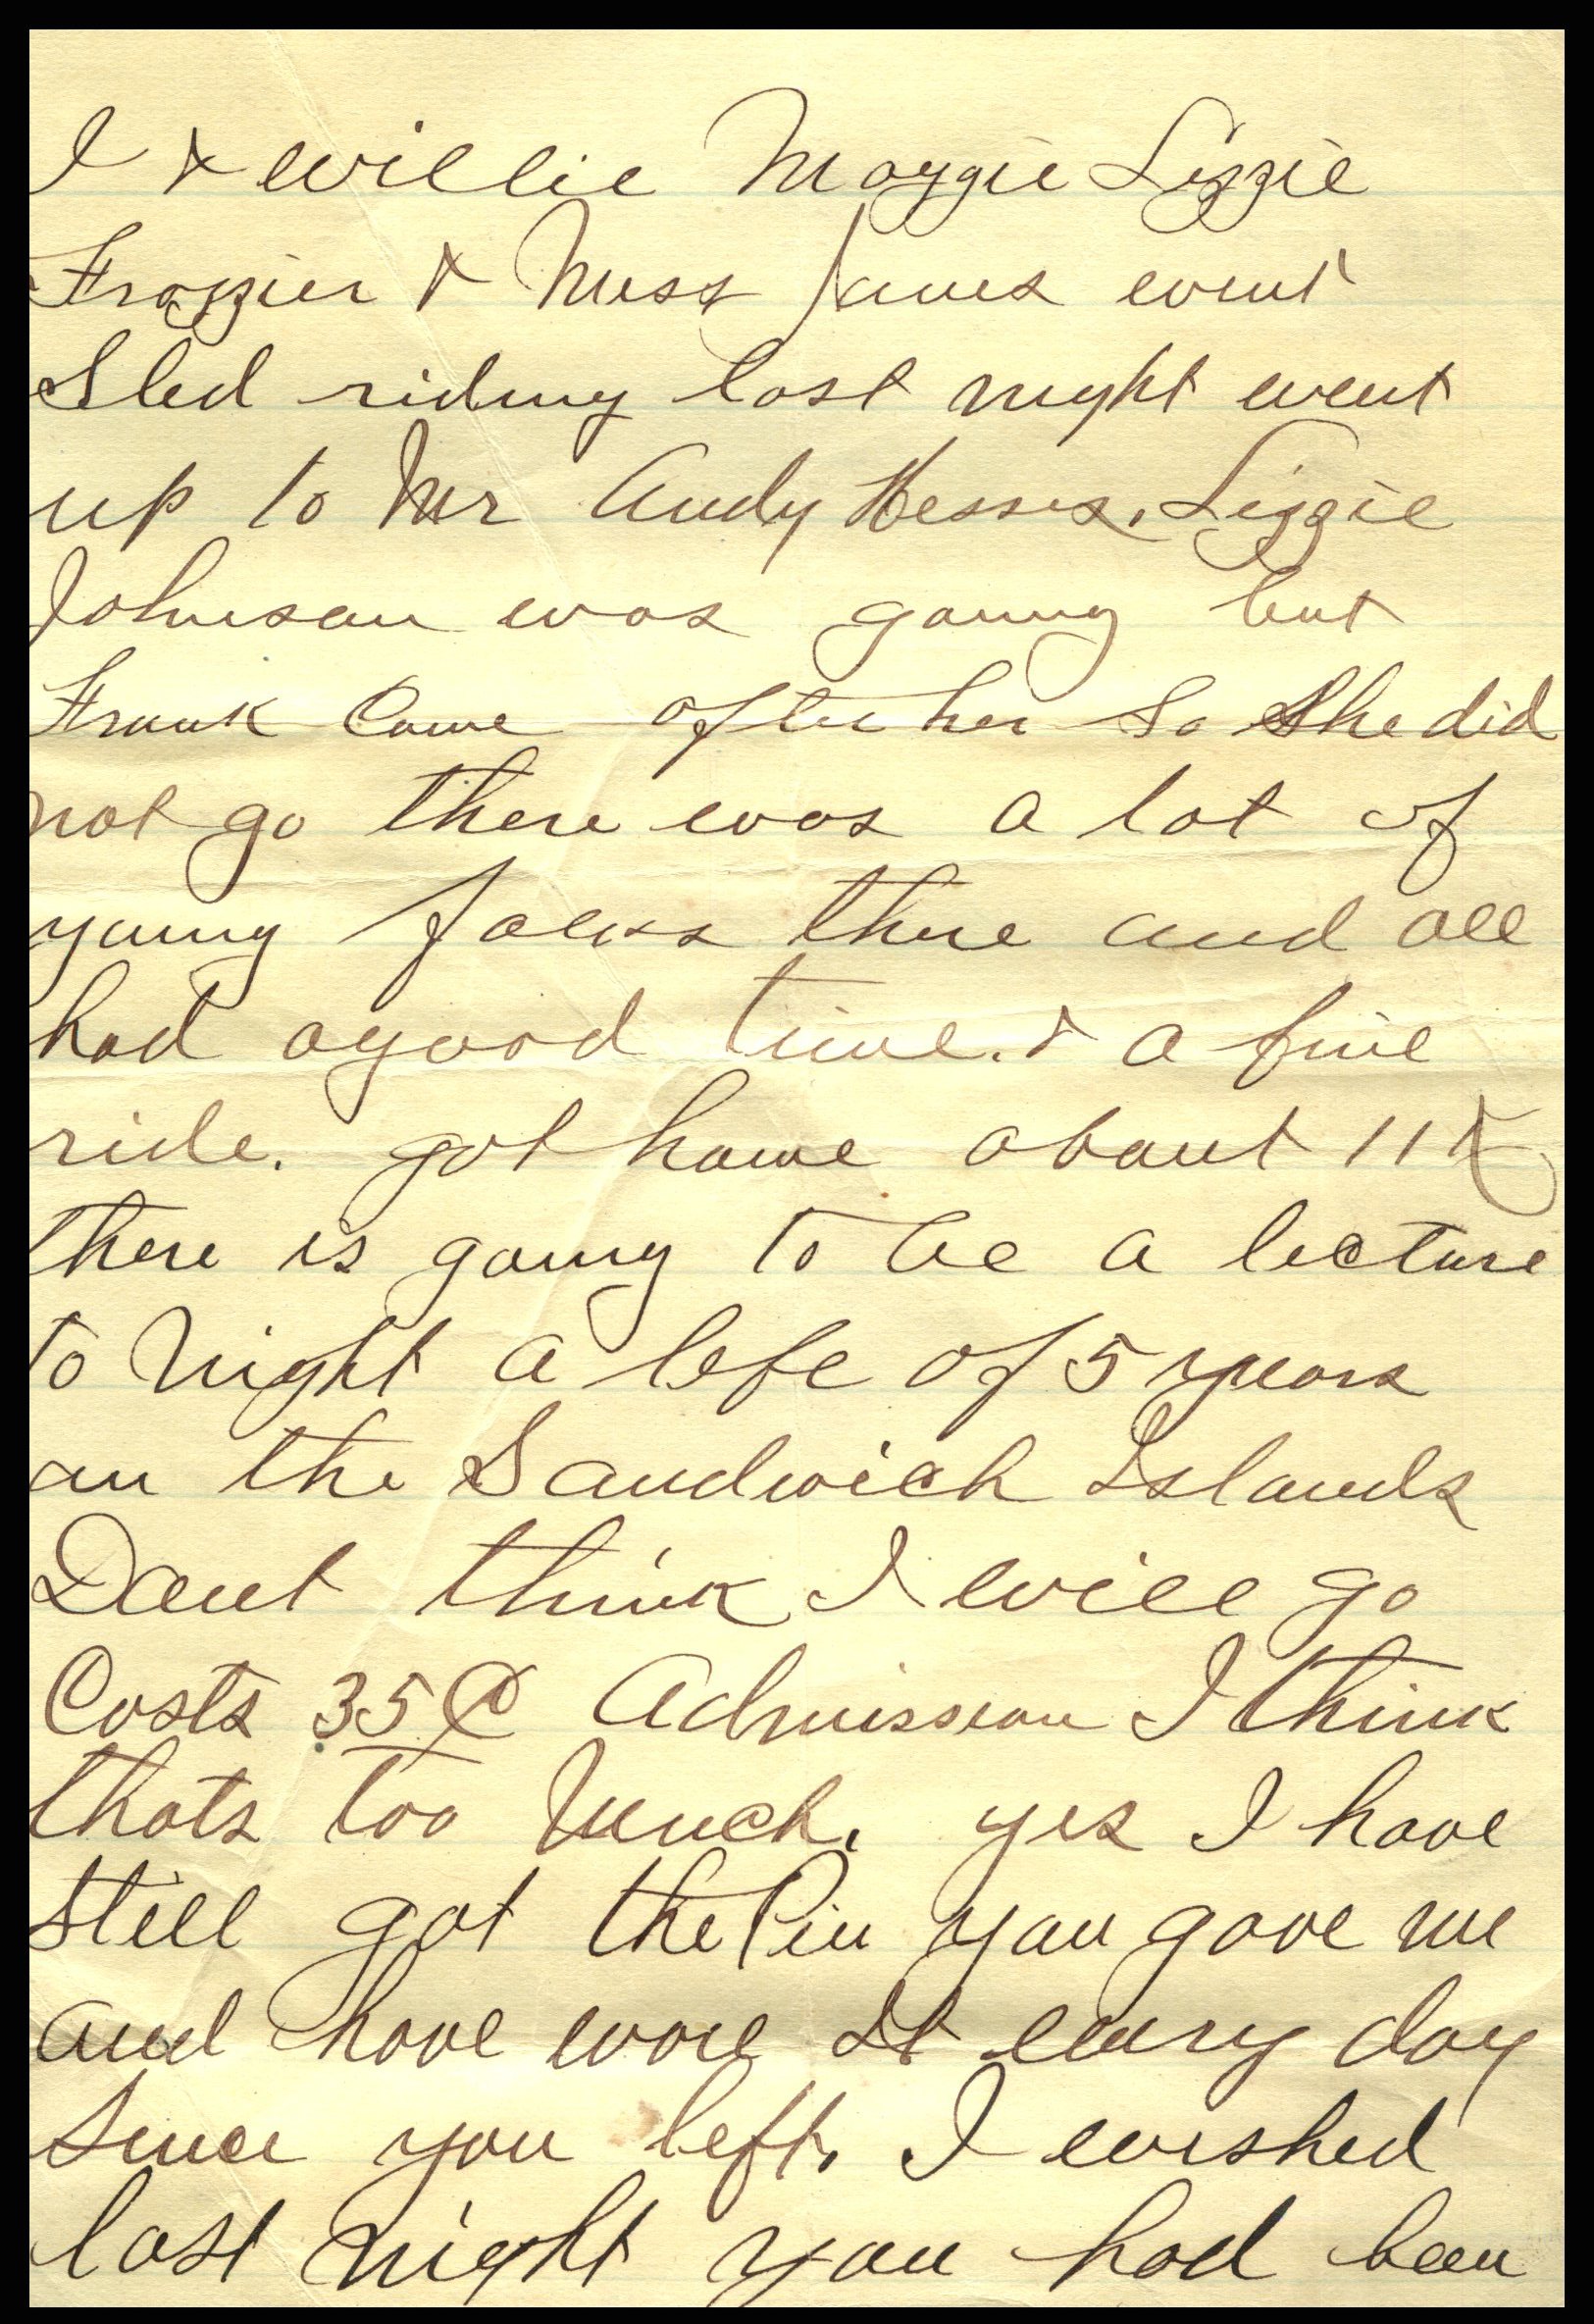 I & Willie Maggie Lizzie
Frazzier & Miss Janes went
Sled riding last night went
up to Mr Andy Hesses. Lizzie
Johnson was going but
Frank Came after her So She did
not go there was a lot of
young folkss there and all
had a good time. & a fine
ride. got home about 11
there is going to be a lecture
to Night a life of 5 years
on the Sandwich Islands
Dont think I will go
Costs 35¢ Admission I think
thats too Much. yes I have
still got the Pin you gave me
and have wore It every day
Since you left. I wished
last night you had been